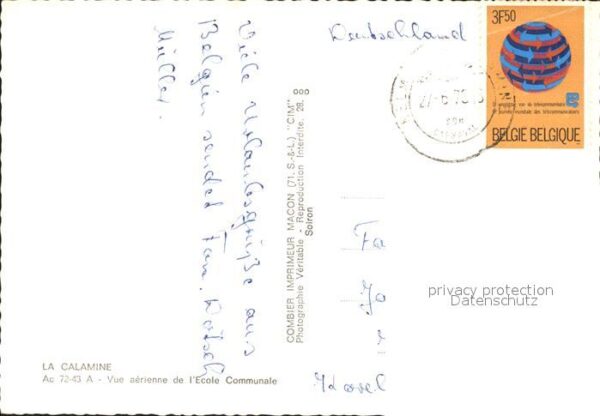 Deutschland
3F50
BELGIE BELGIQUE
Viele Urlaubsgrüße aus
Belgien sendet Fam.
Müller.
ooo
COMBIER IMPRIMEUR MACON (71. S.-&-L.) "CIM"
Photographie Véritable - Reproduction Interdite. 28.
Soiron
Fa
Jo
privacy protection
Datenschutz
LA CALAMINE
Ac 72-43 A - Vue aérienne de l'Ecole Communale